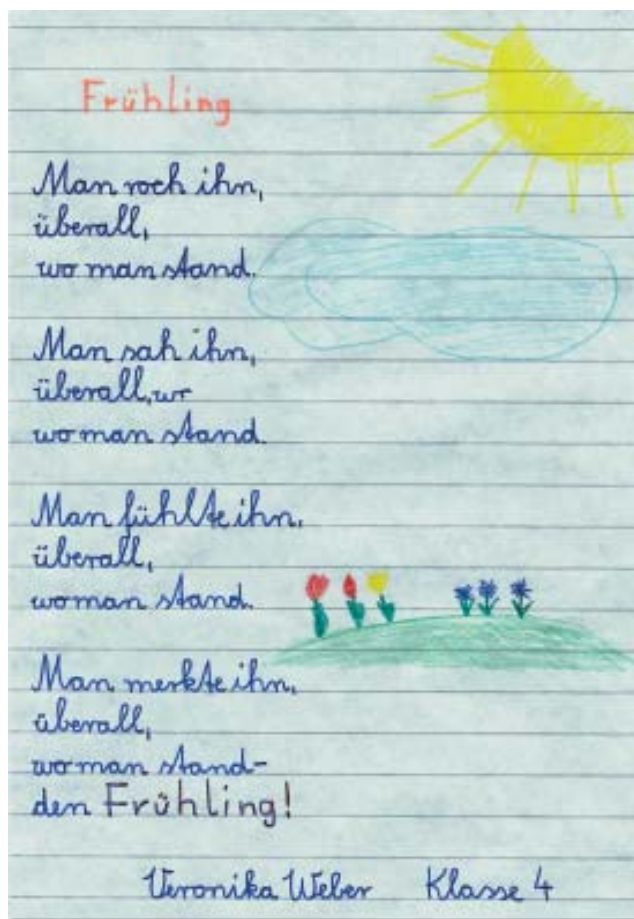 Frühling
Man roch ihn,
überall,
wo man stand.
Man sah ihn,
überall, wo
wo man stand.
Man fühlte ihn,
überall,
wo man stand.
Man merkte ihn,
überall,
wo man stand-
den Frühling!
Veronika Weber Klasse 4